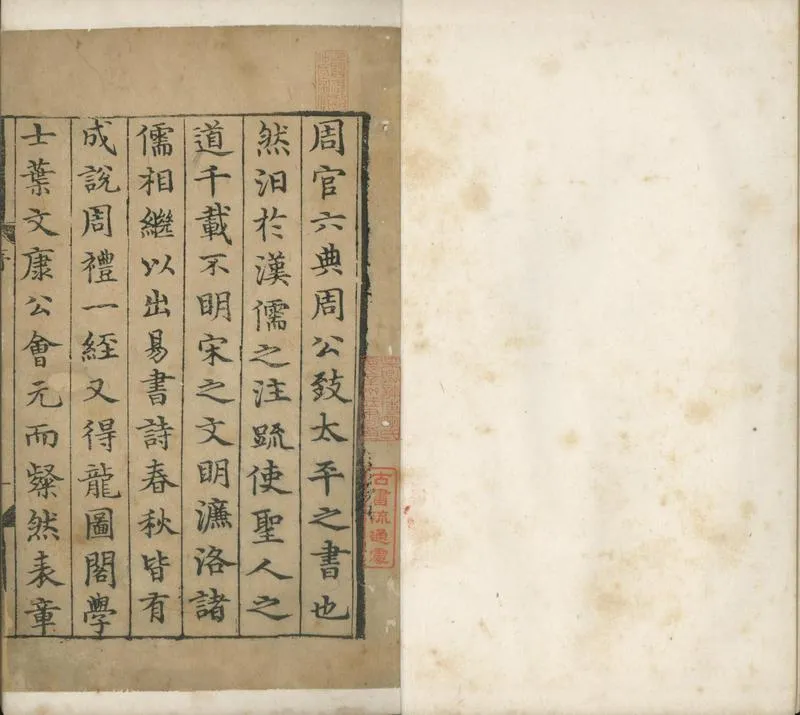 周官六典周公致太平之書也
然汨於漢儒之注䟽使聖人之
道千載不明宋之文明濂洛諸
儒相繼以出易書詩春秋皆有
成說周禮一經又得龍圖閣學
士葉文康公會元而粲然表章
古書流通處